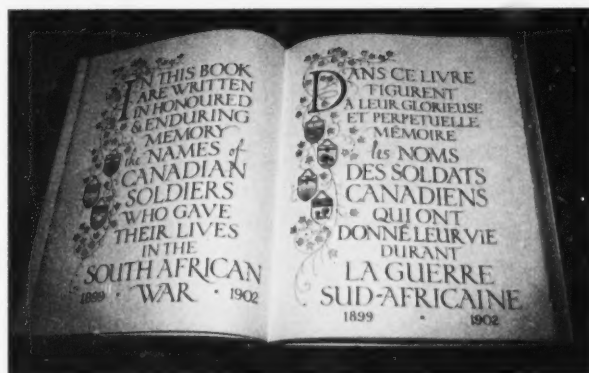 IN THIS BOOK
ARE WRITTEN
IN HONOURED
& ENDURING
MEMORY
the NAMES of
CANADIAN
SOLDIERS
WHO GAVE
THEIR LIVES
IN THE
SOUTH AFRICAN
1899 · WAR · 1902
DANS CE LIVRE
FIGURENT
A LEUR GLORIEUSE
ET PERPETUELLE
MÉMOIRE
les NOMS
DES SOLDATS
CANADIENS
QUI ONT
DONNÉ LEUR VIE
DURANT
LA GUERRE
SUD-AFRICAINE
1899 · 1902